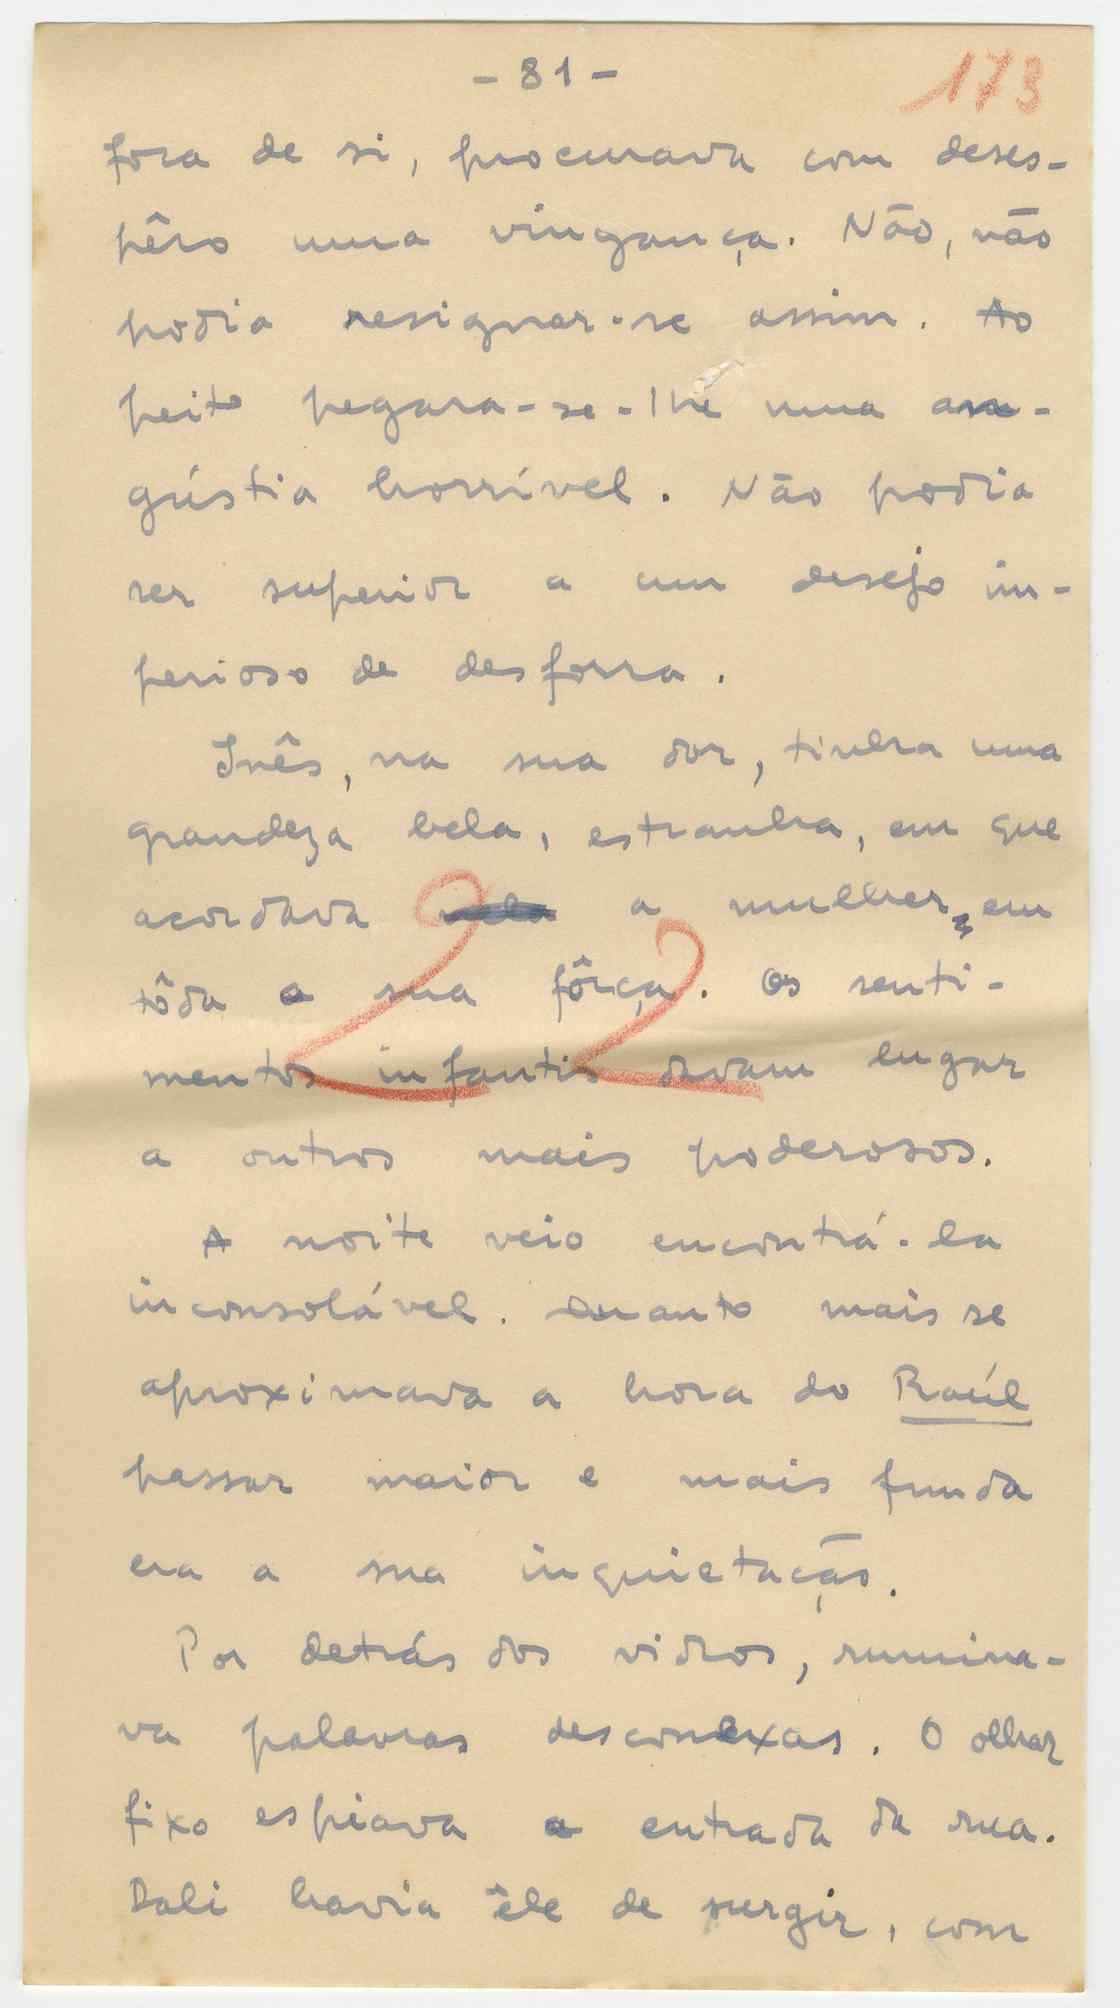 - 81 -
173
fora de si, procurava com deses-
pêro uma vingança. Não, não
podia resignar-se assim. Ao
peito pegara-se-lhe uma an-
gústia horrível. Não podia
ser superior a um desejo im-
perioso de desforra.
Inês, na sua dor, tinha uma
grandeza bela, estranha, em que
acordava a mulher, em
tôda a sua fôrça. Os senti-
22
mentos infantis davam lugar
a outros mais poderosos.
A noite veio encontrá-la
inconsolável. Quanto mais se
aproximava a hora do Raúl
passar maior e mais funda
era a sua inquietação.
Por detrás dos vidros, rumina-
va palavras desconexas. O olhar
fixo espiava a entrada da rua.
Dali havia êle de surgir, com